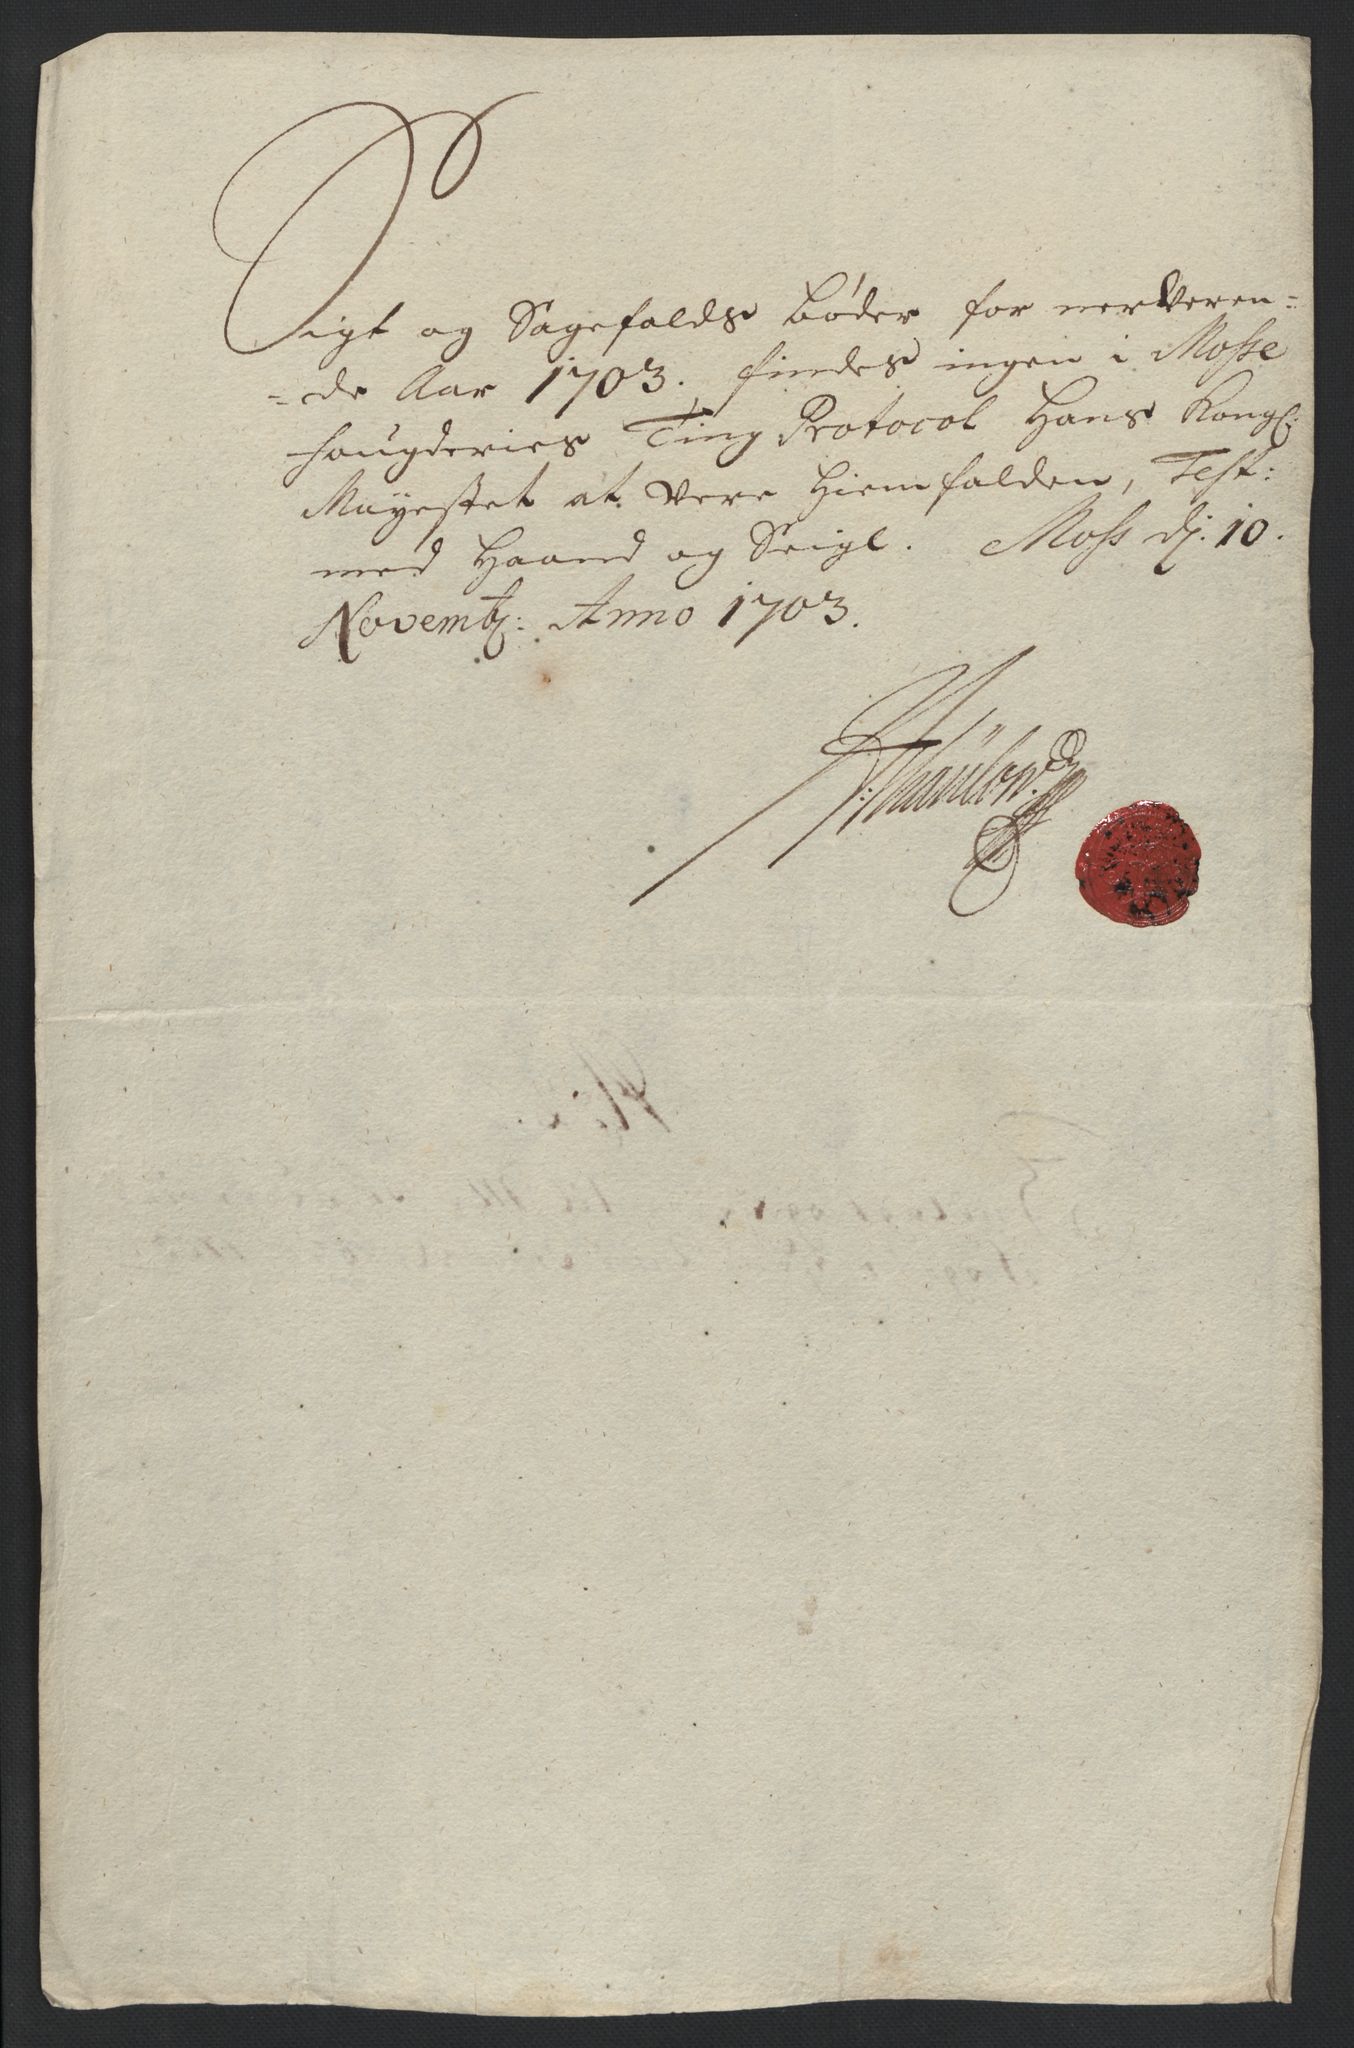 Sigt og Sagefalds bøder for nerVeren=
=de Aar 1703. findes ingen i Mosse
fougderies Ting Protocol Hans Kongl:
Mayestet at vere hiemfalden, Test:
med Haand og Seigl. Moss dj: 10.
Novembr: Anno 1703.